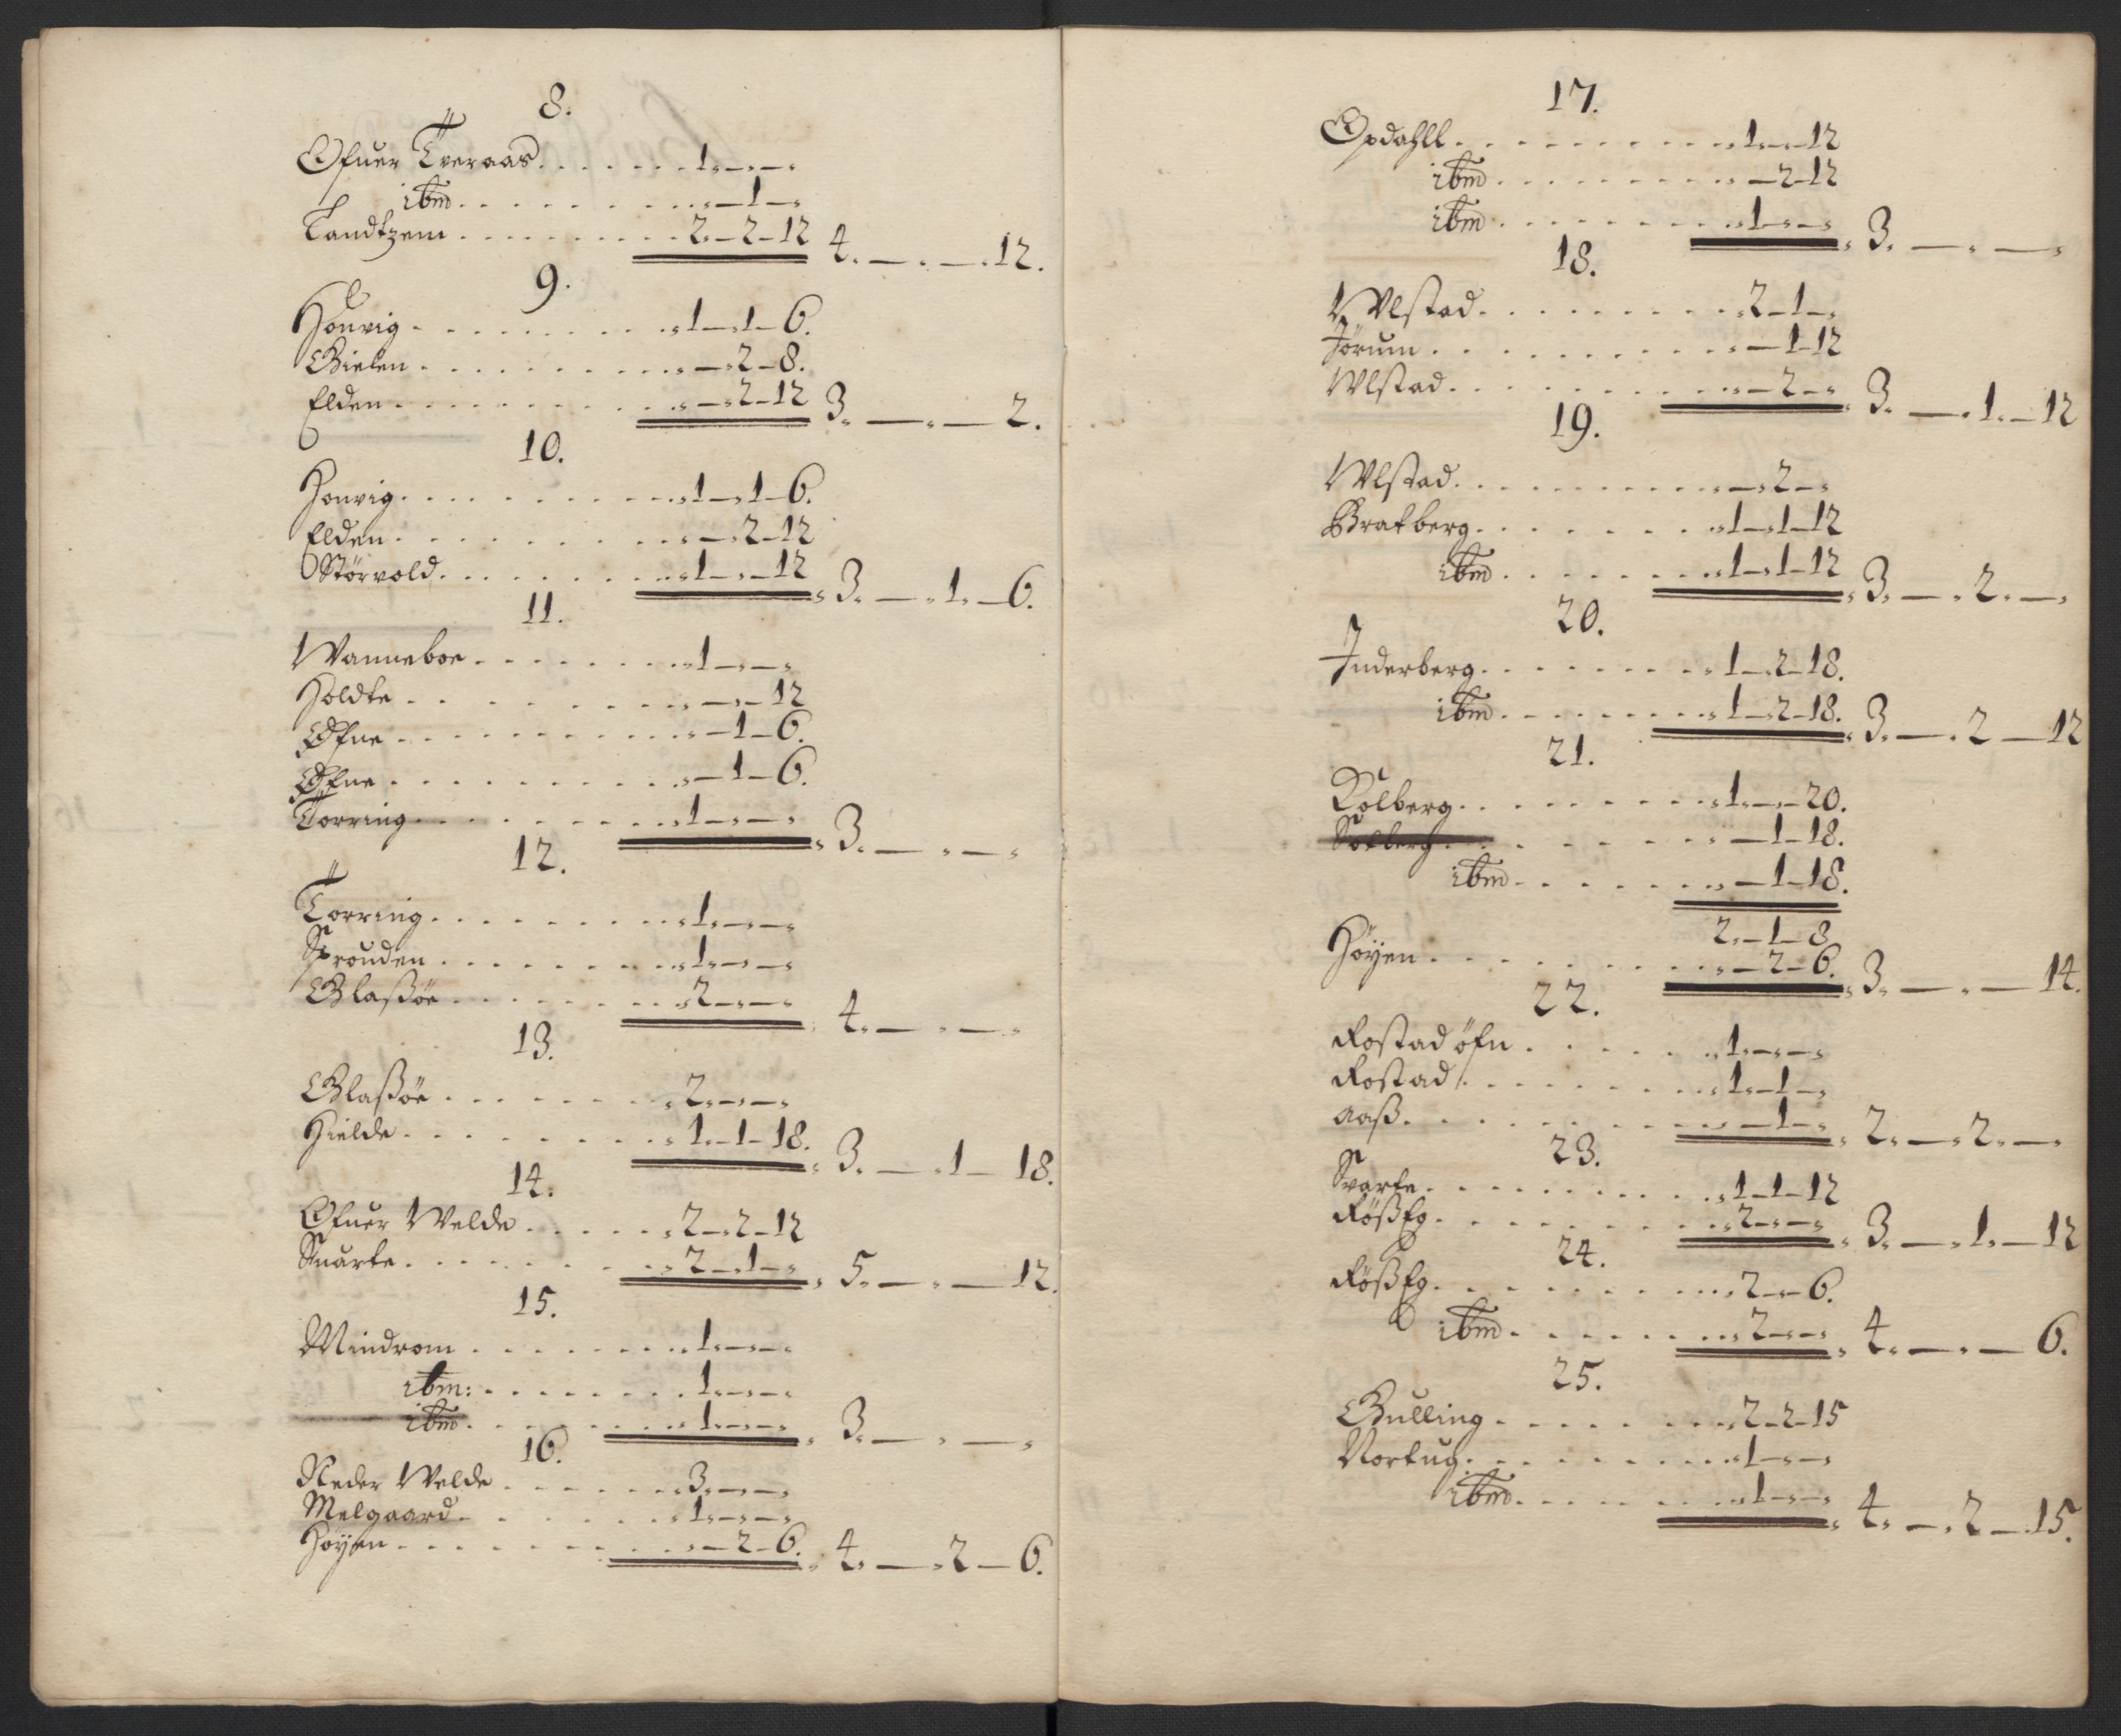 8.
Ofuer Tveraas . . . . . . . 1. — „ — „
ibm . . . . . . . . . „ — 1 — „
Landtzem . . . . . . . . . 2. — 2 — 12 4. — . — . 12.
9.
Honvig . . . . . . . . . 1 — 1 — 6.
Bielen . . . . . . . . . „ — 2 — 8.
Elden . . . . . . . . . „ — 2 — 12 3. — „ — 2.
10.
Honvig . . . . . . . . . 1 — 1 — 6.
Elden . . . . . . . . . „ — 2 — 12
Størvold . . . . . . . . 1 — „ — 12 3. — . 1. — 6.
11.
Wanneboe . . . . . . . 1 — „ — „
Holdte . . . . . . . . . „ — „ — 12
Øfne . . . . . . . . . „ — 1 — 6.
Øfne . . . . . . . . . „ — 1 — 6.
Torring . . . . . . . . 1. — „ — „ 3. — „ — „
12.
Torring . . . . . . . . 1. — „ — „
Sprouden . . . . . . . . 1. — „ — „
Blaßöe . . . . . . . . 2. — „ — „ 4. — „ — „
13.
Blaßöe . . . . . . . . 2. — „ — „
Hielde . . . . . . . . 1. — 1 — 18. 3. — . 1 — 18.
14.
Ofuer Welde . . . . . . 2 — 2 — 12
Suarte . . . . . . . . 2 — 1 — „ 5. — „ — 12.
15.
Mindrom . . . . . . . . 1. — „ — „
ibm: . . . . . . . . 1. — „ — „
ibm . . . . . . . . 1. — „ — „ 3. — „ — „
16.
Neder Welde . . . . . . 3. — „ — „
Melgaard . . . . . . . 1. — „ — „
Høyen . . . . . . . . „ — 2 — 6. 4. — „ 2 — 6.
17.
Opdahll . . . . . . . . . 1. — „ — 12
ibm . . . . . . . . . „ — 2 — 12
ibm . . . . . . . . . 1 — „ — „ 3. — . — „
18.
Wlstad . . . . . . . . . 2 — 1 — „
Jörum . . . . . . . . . „ — 1 — 12
Wlstad . . . . . . . . . „ — 2 — „ 3. — . 1. — 12
19.
Wlstad . . . . . . . . . „ — 2 — „
Bratberg . . . . . . . . 1 — 1 — 12
ibm . . . . . . . . 1 — 1 — 12 3. — . 2. — „
20.
Inderberg . . . . . . . . 1 — 2 — 18.
ibm . . . . . . . . 1 — 2 — 18. 3. — . 2 — 12
21.
Kolberg . . . . . . . . 1. — „ — 20.
Solberg . . . . . . . . „ — 1 — 18.
ibm . . . . . . . . „ — 1 — 18.
2. — 1 — 8
Høyen . . . . . . . . „ — 2 — 6. 3. — „ — 14.
22.
Rostad öfn . . . . . . . 1. — „ — „
Rostad . . . . . . . . 1. — 1 — „
Aaß . . . . . . . . „ — 1 — „ 2. — „ 2. — „
23.
Svarte . . . . . . . . 1 — 1 — 12
Rößhg . . . . . . . . 2 — „ — „ 3. — „ 1. — 12
24.
Rößhg . . . . . . . . 2 — „ — 6.
ibm . . . . . . . . 2 — „ — „ 4. — „ — 6.
25.
Bulling . . . . . . . . 2 — 2 — 15
Nortug . . . . . . . . 1 — „ — „
ibm . . . . . . . . 1 — „ — „ 4. — „ 2 — 15.